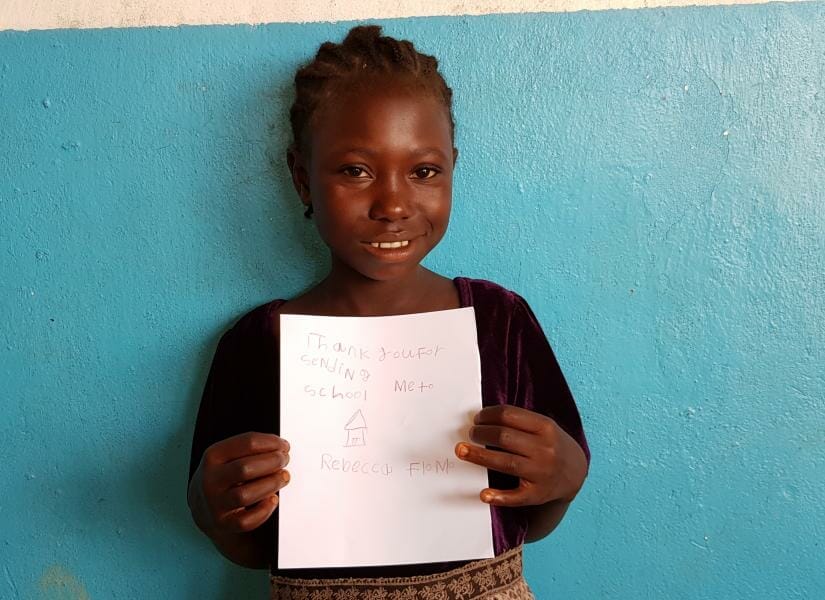 Thank you For
sending
school Me to
Rebecca FloMo